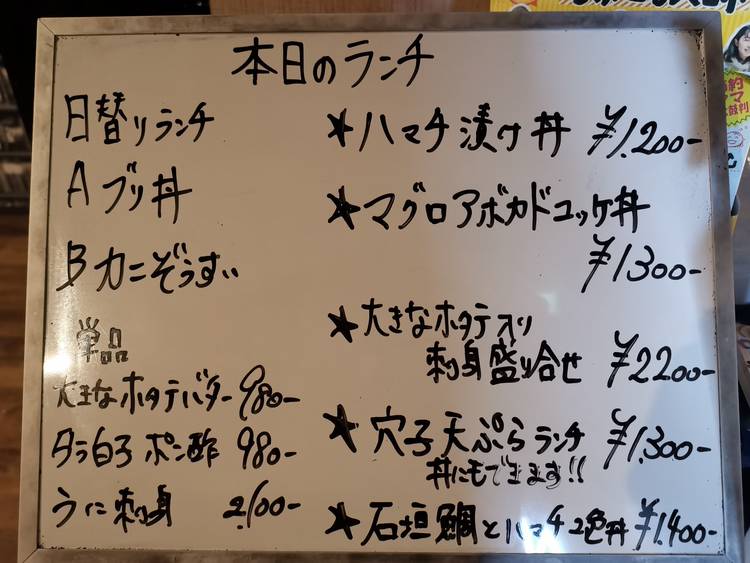 本日のランチ
日替りランチ
A ブリ丼
B カニぞうすい
単品
大きなホタテバター 980-
タラ白子ポン酢 980-
うに刺身 2,100-
★ハマチ漬け丼 ¥1,200-
★マグロアボカドユッケ丼
¥1300-
★大きなホタテ入り
刺身盛り合せ ¥2200-
★穴子天ぷらランチ ¥1,300-
丼にもできます!!
★石垣鯛とハマチ2色丼 ¥1,400-